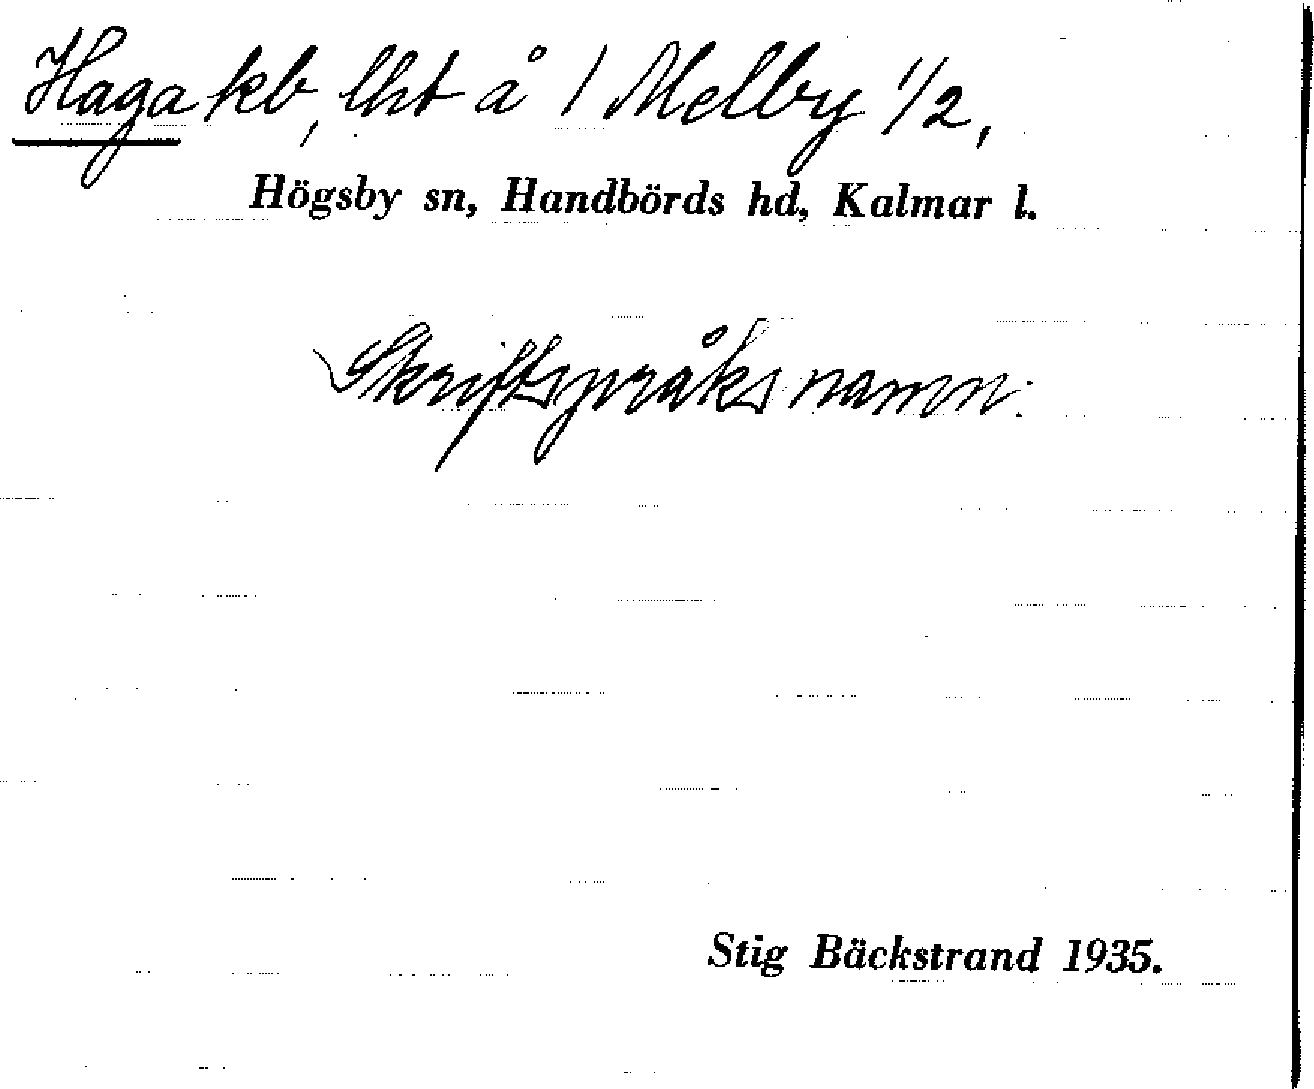 Haga kb, lht å 1 Melby 1/2,
Högsby sn, Handbörds hd, Kalmar l.
Skriftspråksnamn.
Stig Bäckstrand 1935.